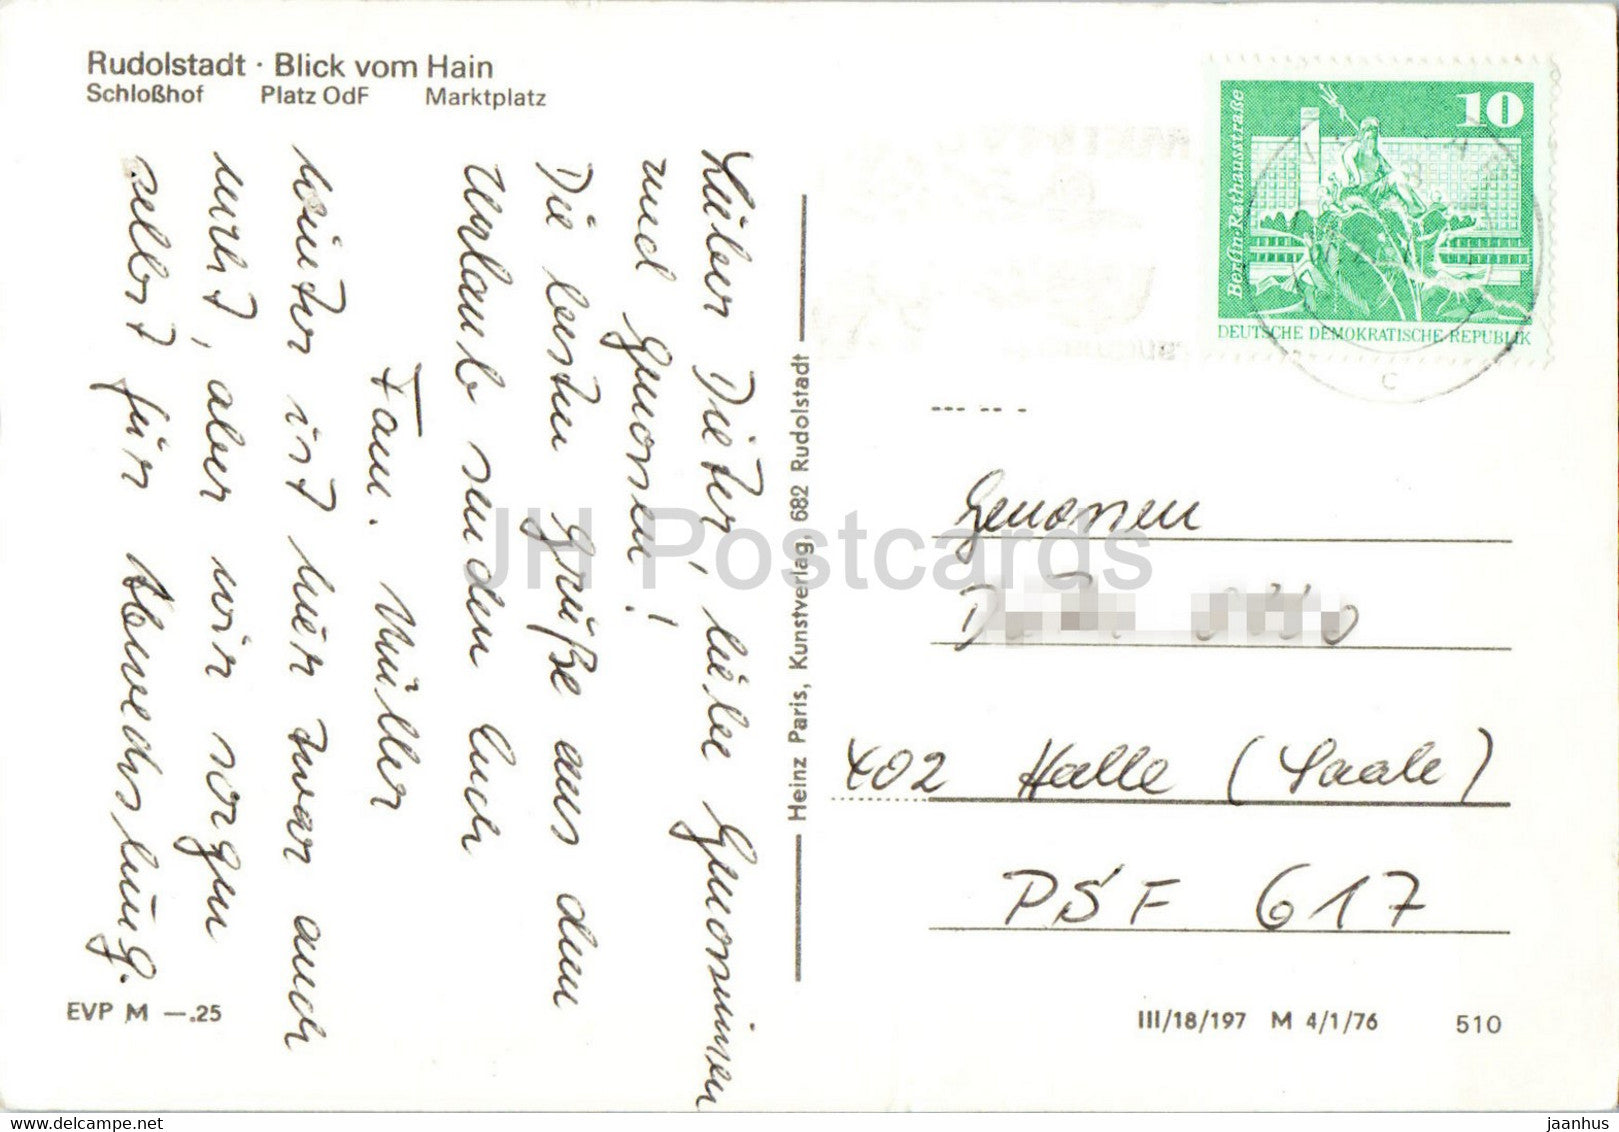 Rudolstadt · Blick vom Hain
Schloßhof Platz OdF Marktplatz
Lieber Dieter, liebe Genossinnen
und Genossen!
Die besten Grüße aus dem
Urlaub senden Euch
Fam. Müller
Winter ist hier zwar auch
nicht, aber wir sorgen
selbst für Abwechslung.
EVP M —.25
Heinz Paris, Kunstverlag, 682 Rudolstadt
10
Berlin Rathausstraße
DEUTSCHE DEMOKRATISCHE REPUBLIK
C
Genossen
402 Halle (Saale)
PSF 617
III/18/197 M 4/1/76 510
JH Postcards
www.delcampe.net
jaanhus